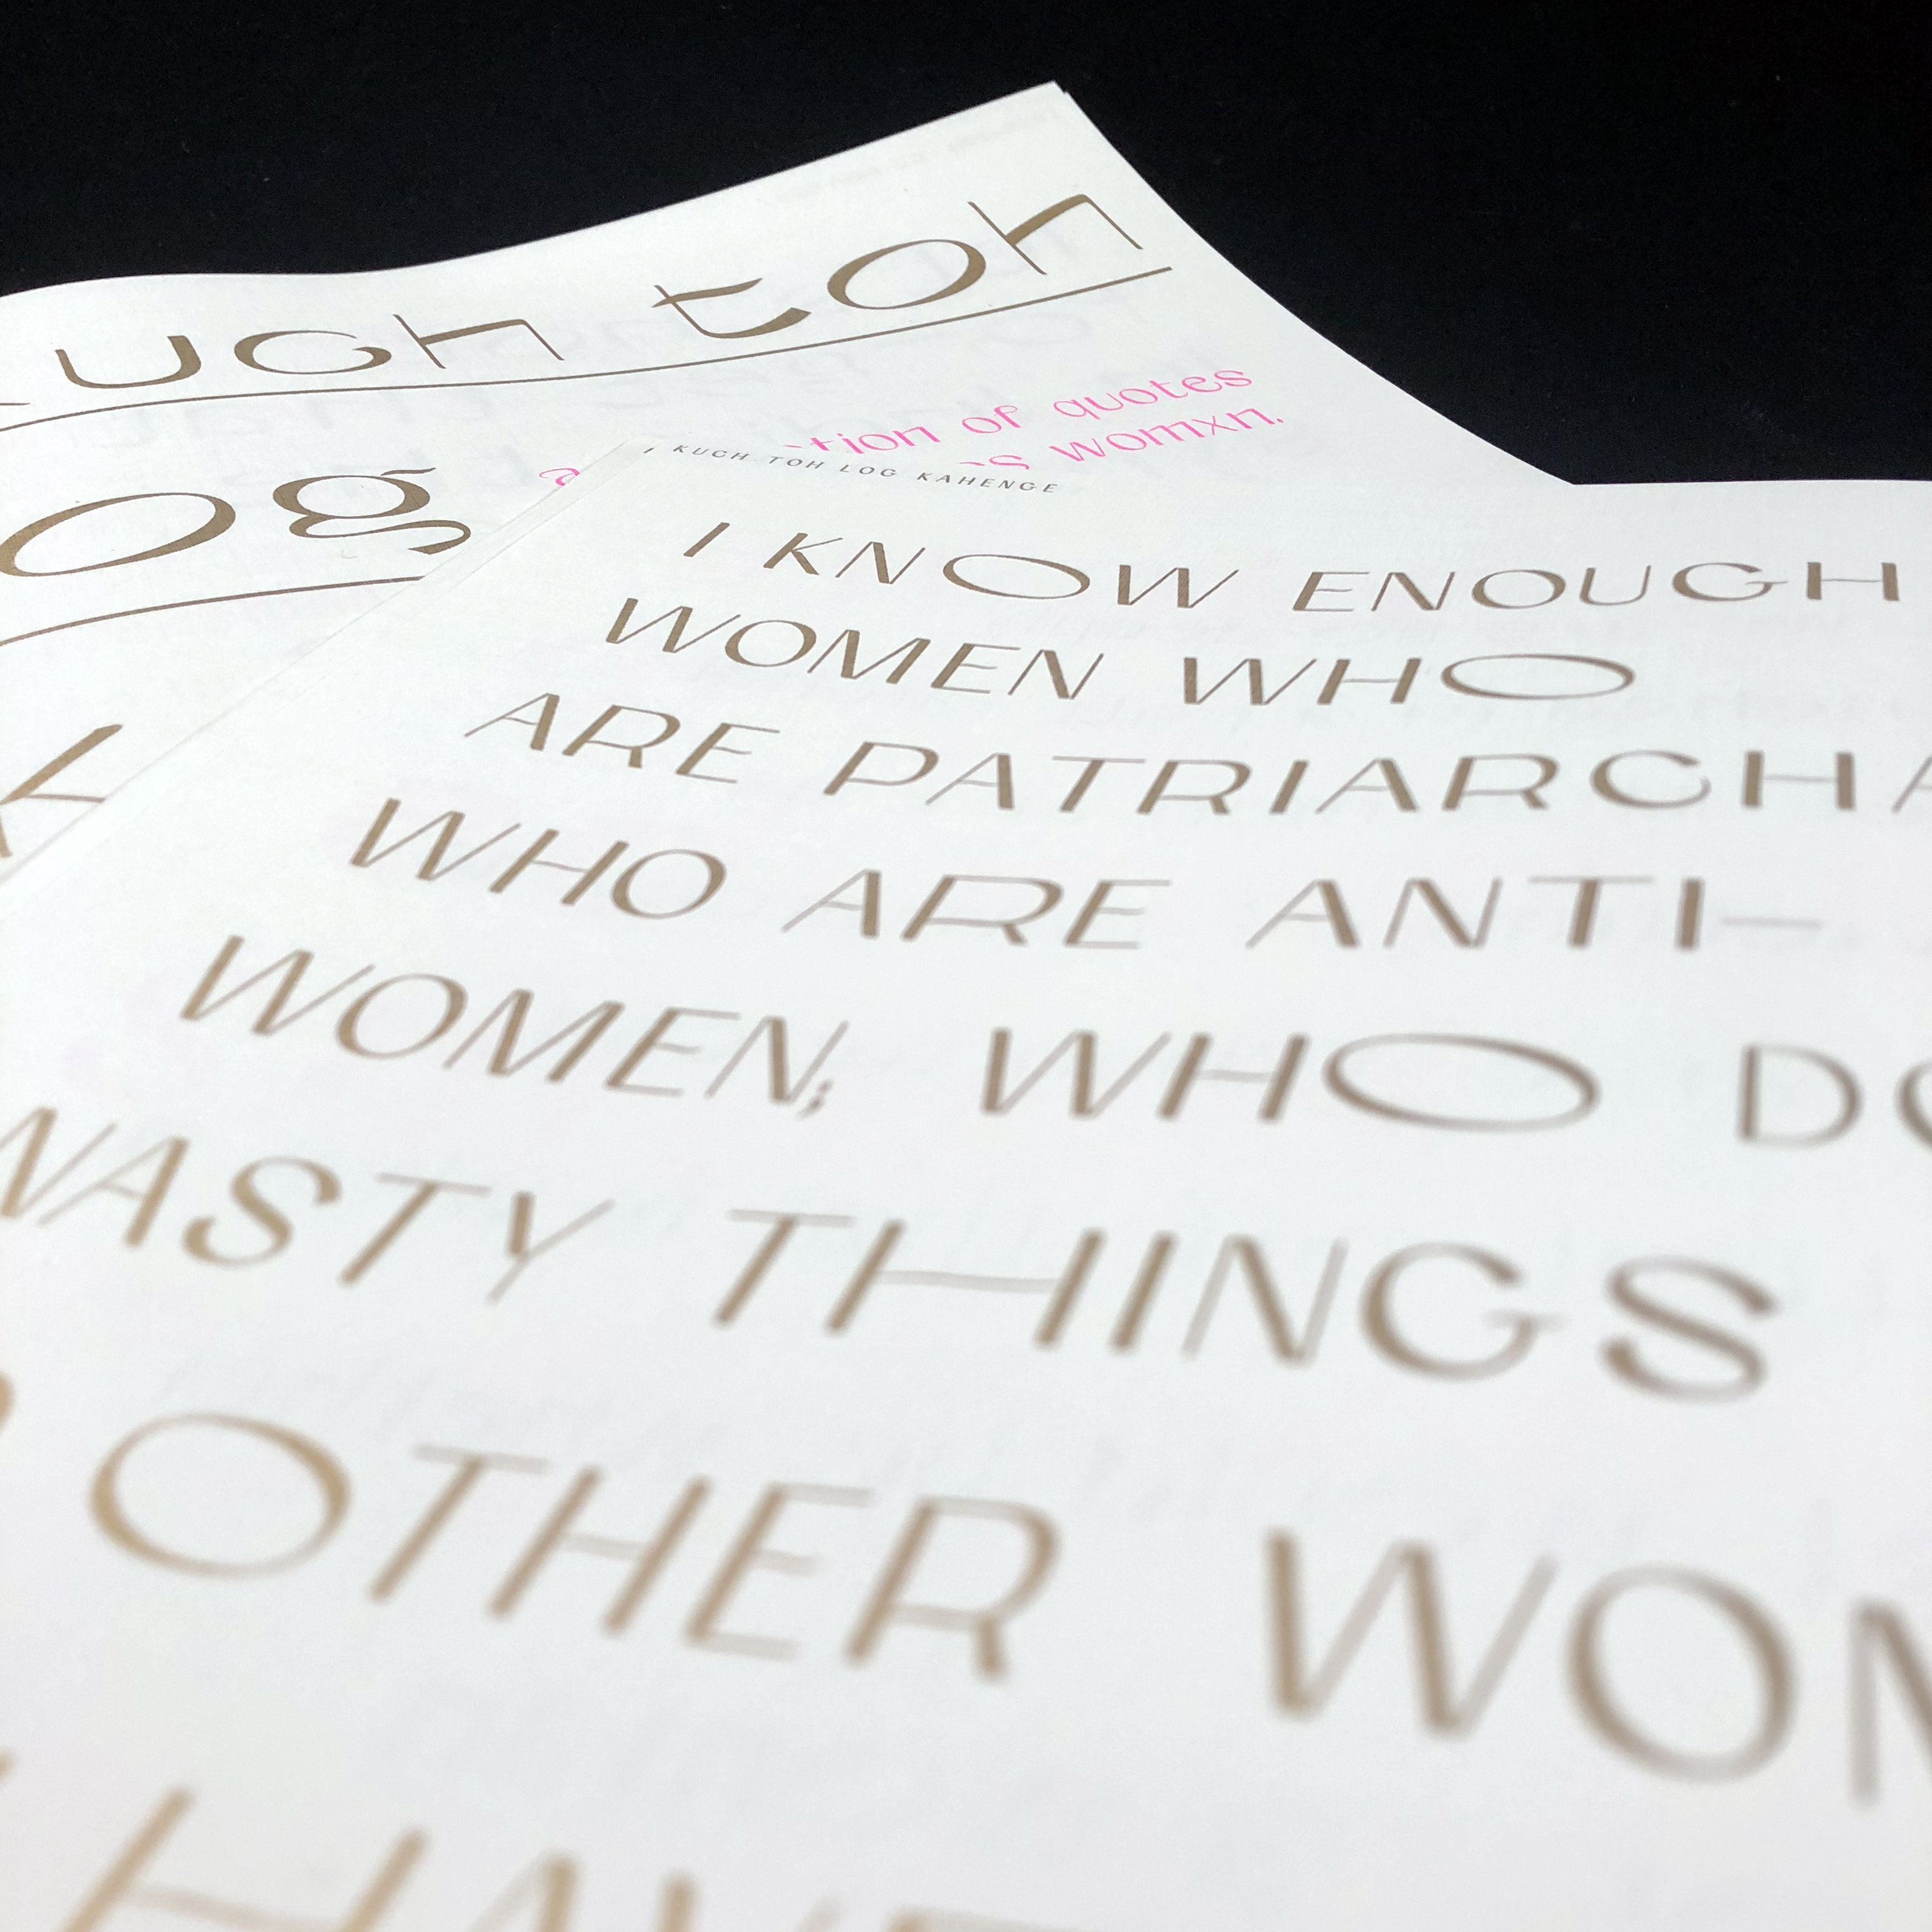 uch toh
og
tion of quotes
s womxn.
KUCH TOH LOG KAHENGE
I KNOW ENOUGH
WOMEN WHO
ARE PATRIARCHA
WHO ARE ANTI-
WOMEN; WHO DO
NASTY THINGS
OTHER WOM
HAVE